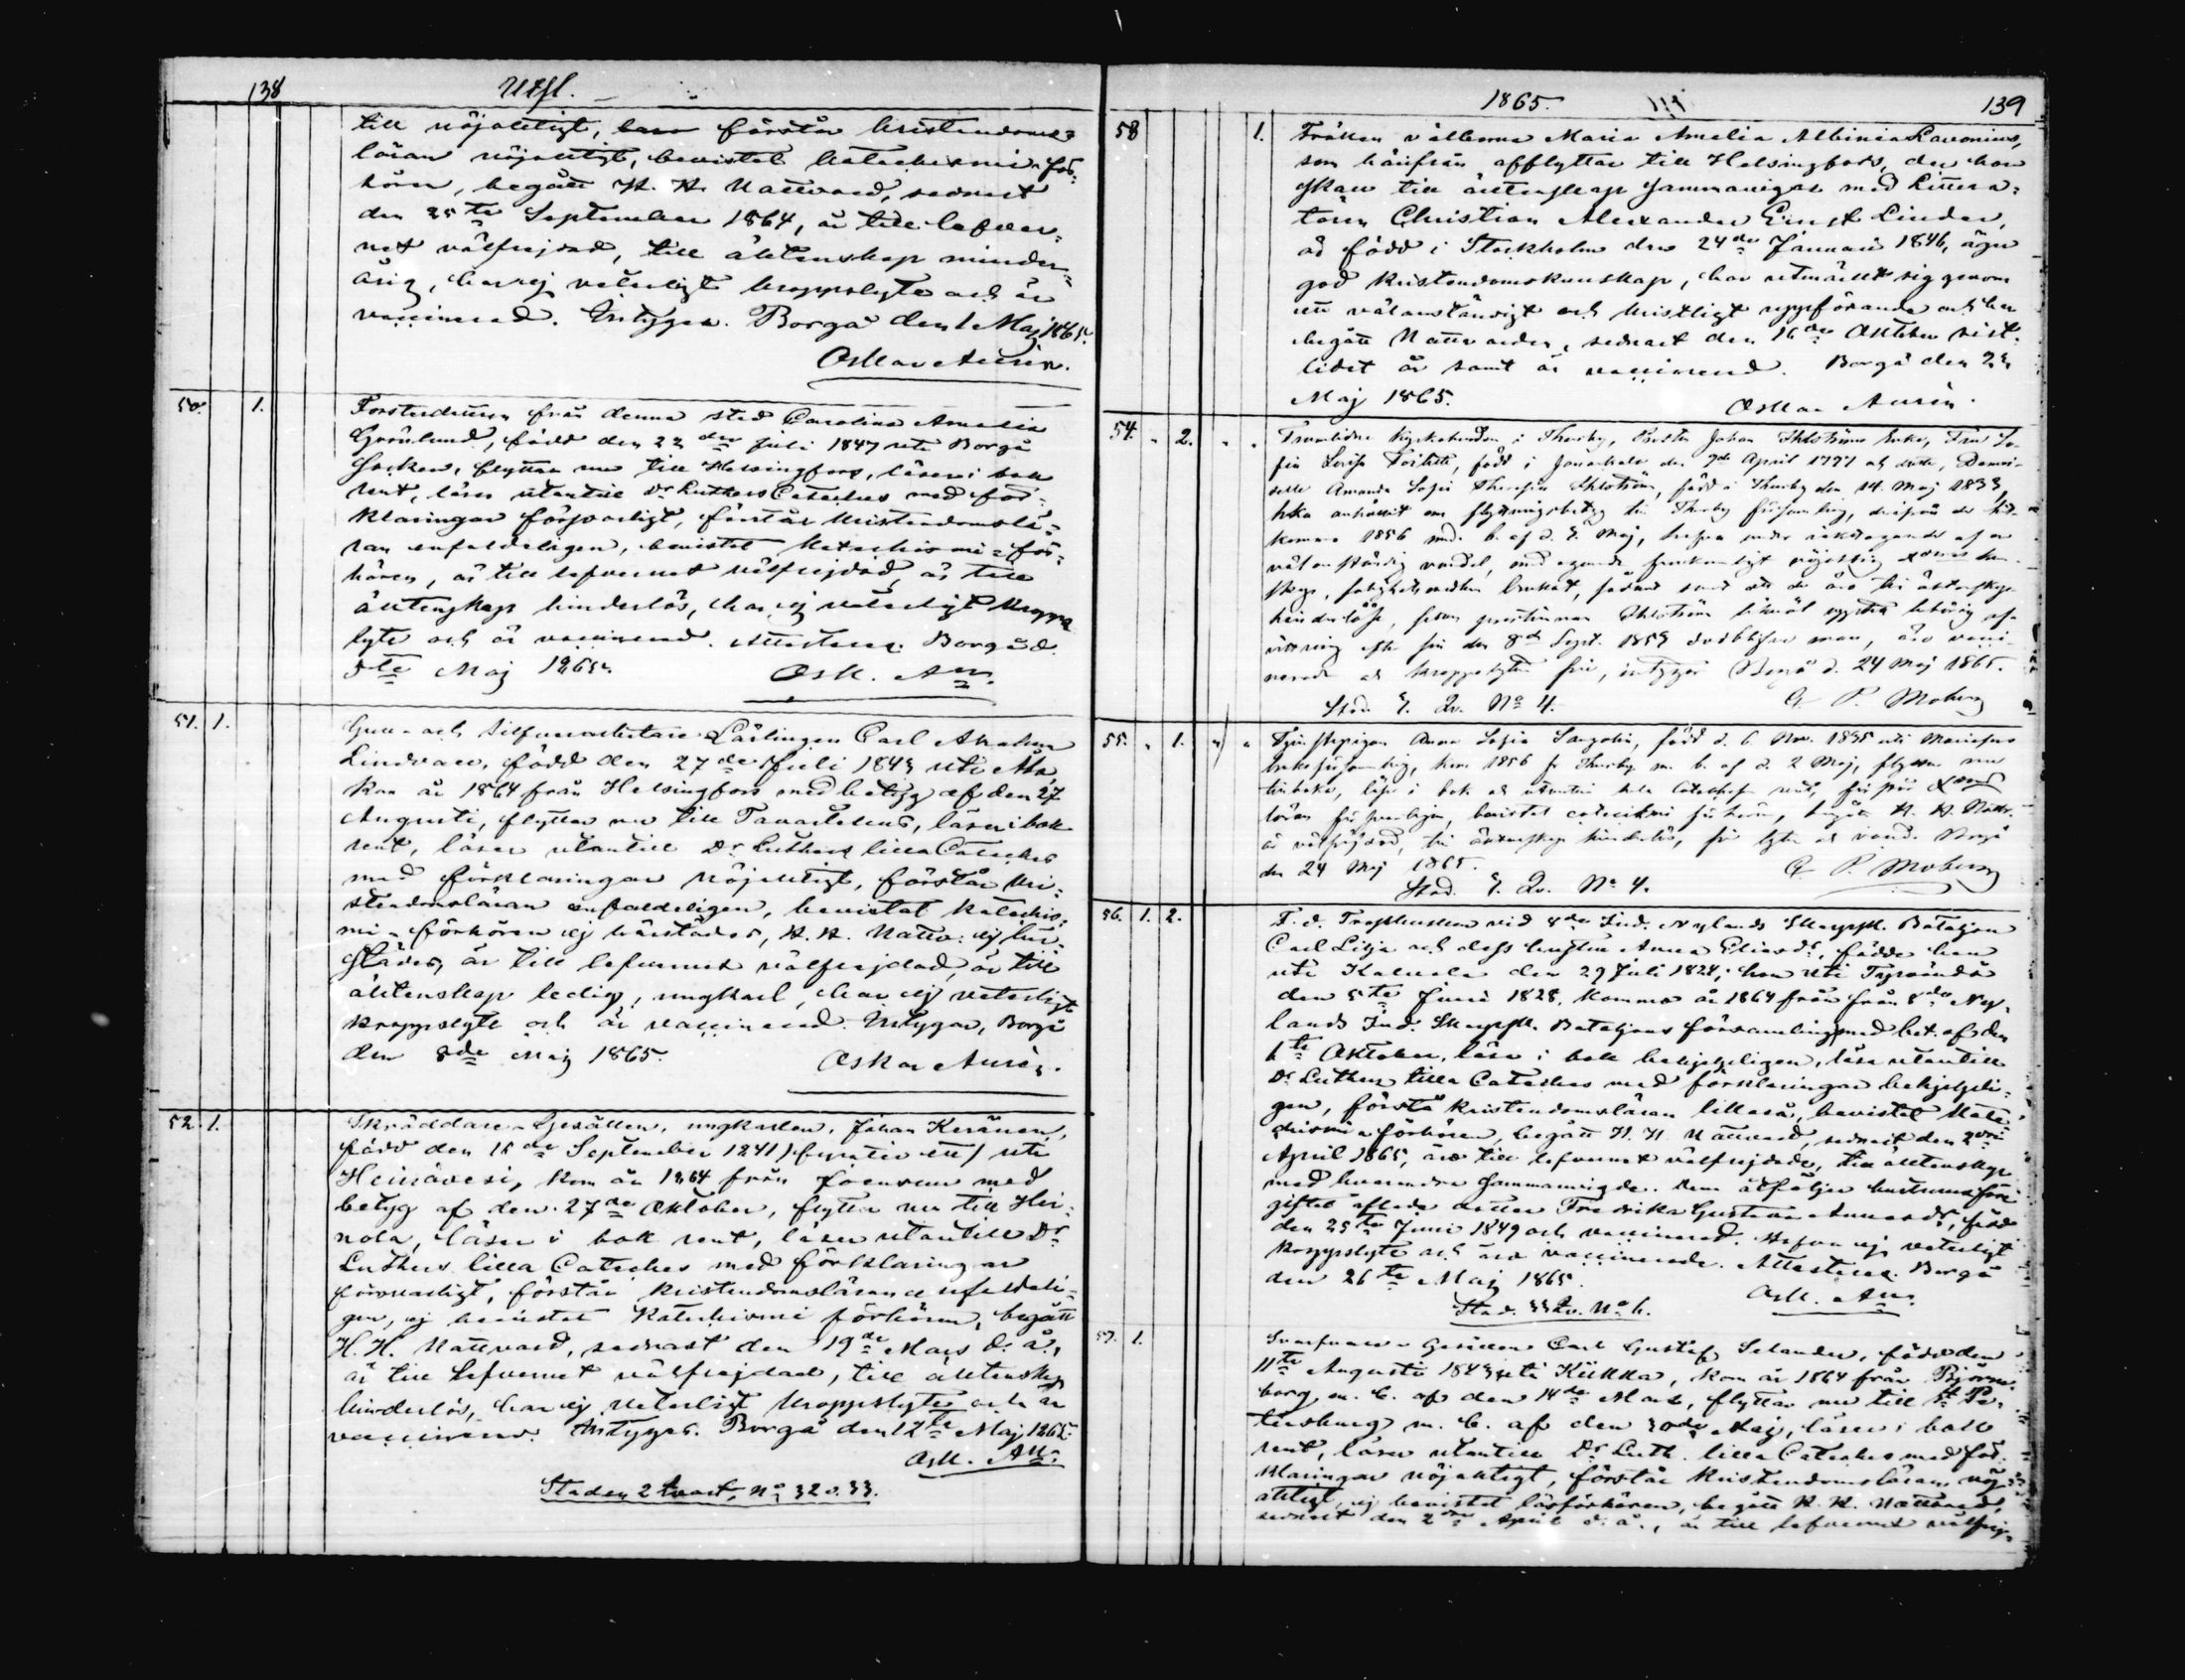 138 Utfl.
till nöjaktigt, förstår kristendoms-
läran nöjaktigt, bevistat katechismi-för-
hören, begått H. H. Nattvard, sednast
den 25te September 1864, är till lefver-
net välfrejdad, till äktenskap minder-
årig, har ej veterligt kroppslyte och är
vaccinerad. Intygas. Borgå den 1 Maj 1865.
Oskar Aurén.
50. 1.
från denna stad Carolina Amalia
Grönlund, född den 22dra Juli 1847 uti Borgå
Socken, flyttar nu till Helsingfors, läser i bok
rent, läser utantill Dr Luthers Cateches med för-
klaringar försvarligt, förstår kristendomslä-
ran enfaldeligen, bevistat katechismi-för-
hören, är till lefvernet välfrejdad, är till
äktenskap hinderlös, har ej veterligt kropps
lyte och är vaccinerad. Attesteras. Borgå d.
5te Maj 1865.
Osk. Aun.
51. 1.
Guld- och Silfverarbetare Lärlingen Carl Abraham
Lindvall, född den 27de Juli 1843 uti Åbo,
kom år 1864 från Helsingfors med betyg af den 27
Augusti, flyttar nu till Tavastehus, läser i bok
rent, läser utantill Dr Luthers lilla Cateches
med förklaringar nöjaktigt, förstår kri-
stendomsläran enfaldeligen, bevistat katechis-
mi-förhören ej härstädes, H. H. Nattv. ej här-
städes, är till lefvernet välfrejdad, är till
äktenskap ledig, ungkarl, har ej veterligt
kroppslyte och är vaccinerad. Intygar, Borgå
den 8de Maj 1865.
Oskar Aurén.
52. 1.
Skräddare-Gesällen, ungkarlen, Johan Keränen,
född den 15de September 1841 / fyratio ett / uti
Heinävesi, kom år 1864 från Joensuu med
betyg af den 27de Oktober, flyttar nu till Hei-
nola, läser i bok rent, läser utantill Dr
Luthers lilla Cateches med förklaringar
försvarligt, förstår kristendomsläran enfaldeli-
gen, ej bevistat katechismi förhören, begått
H. H. Nattvard, sednast den 19de Mars d. å.,
är till lefvernet välfrejdad, till äktenskap
hinderlös, har ej veterligt kroppslyte och är
vaccinerad. Intygas. Borgå den 12te Maj 1865.
Osk. Aun.
Staden 2 kvart. No 32 o. 33.
1865. 139
53 1.
Fröken välborna Maria Amalia Albinia Lavonius,
som härifrån afflyttar till Helsingfors, der hon
skall till äktenskap sammanvigas med Littera-
tören Christian Alexander Ernst Linder,
är född i Stockholm den 24de Januari 1846, äger
god kristendomskunskap, har utmärkt sig genom
ett välanständigt och kristligt uppförande och har
begått Nattvarden, sednast den 16de Oktober sist-
lidet år samt är vaccinerad. Borgå den 23
Maj 1865. Oskar Aurén.
54. " 2. " "
Framlidne Kyrkoherden i Thusby, Prosten Johan Ahlströms Enka, Fru So-
fia född i Janakkala den 9de April 1797 och dotter, Demoi-
selle Amanda Sofia Ahlström, född i Thusby den 14. Maj 1833,
hvilka anhållit om flyttningsbetyg till Thusby församling, derifrån de hit
kommo 1856 med b. af d. 7. Maj, hafva under iakttagande af en
välanständig vandel, med ägande nöjaktig
skap,
hinderlösa,
efter sin den 8de Sept. 1859 man, äro vacci-
nerade och kroppslyten fria, intygar Borgå d. 24 Maj 1865.
Stad. 3. Qv. No 4. G. P. Moberg
55. " 1. " "
Tjenstepigan Anna Sofia född d. 6. Nov. 1835 uti Mariefors
bruksförsamling, kom 1856 fr Thusby m. b. af d. 2 Maj, flyttar nu
tillbaka, läser i bok och utantill hela Catechesen rent, förstår
läran försvarligen, bevistat catechismi förhören, begått H. H. Nattv.
är välfrejdad, till äktenskap hinderlös, fri lyten och vaccin. Borgå
den 24 Maj 1865.
Stad. 3. Qv. No 4. G. P. Moberg
56. 1. 2.
F. d. vid 8de Ind. Nylands Skarpsk. Bataljon
Carl Lilja och dess hustru Anna Eliasdr, födde han
uti Kalvola den 29 Juli 1824, hon uti Tyrvändö
den 5te Juni 1828, kommo år 1864 från från 8de Ny-
lands Ind. Skarpsk. Bataljons församling med bet. af den
6te Oktober, läsa i bok behjelpeligen, läsa utantill
Dr Luthers lilla Cateches med förklaringar behjelpeli-
gen, förstå kristendomsläran likaså, bevistat kate-
chismi förhören, begått H. H. Nattvard, sednast den 2dra
April 1865, äro till lefvernet välfrejdade, till äktenskap
med hvarandra sammanvigde. Dem åtföljer hustruns före
giftet aflade dotter Fredrika Gustava Annasdr, född
den 25te Juni 1849 och vaccinerad. Hafva ej veterligt
kroppslyte och äro vaccinerade. Attesteras. Borgå
den 26te Maj 1865. Osk. Aun.
Stad. 3 Qv. No 6.
57. 1.
Gesällen Carl Gustaf Selander, född den
11te Augusti 1843 uti Kiikka, kom år 1864 från Björne-
borg m. b. af den 14de Mars, flyttar nu till St Pe-
tersburg m. b. af den 30de Maj, läser i bok
rent, läser utantill Dr Luth. lilla Cateches med för-
klaringar nöjaktigt, förstår kristendomsläran nöj-
aktigt, ej bevistat läsförhören, begått H. H. Nattvard,
sednast den 2dra April d. å., är till lefvernet välfrej-